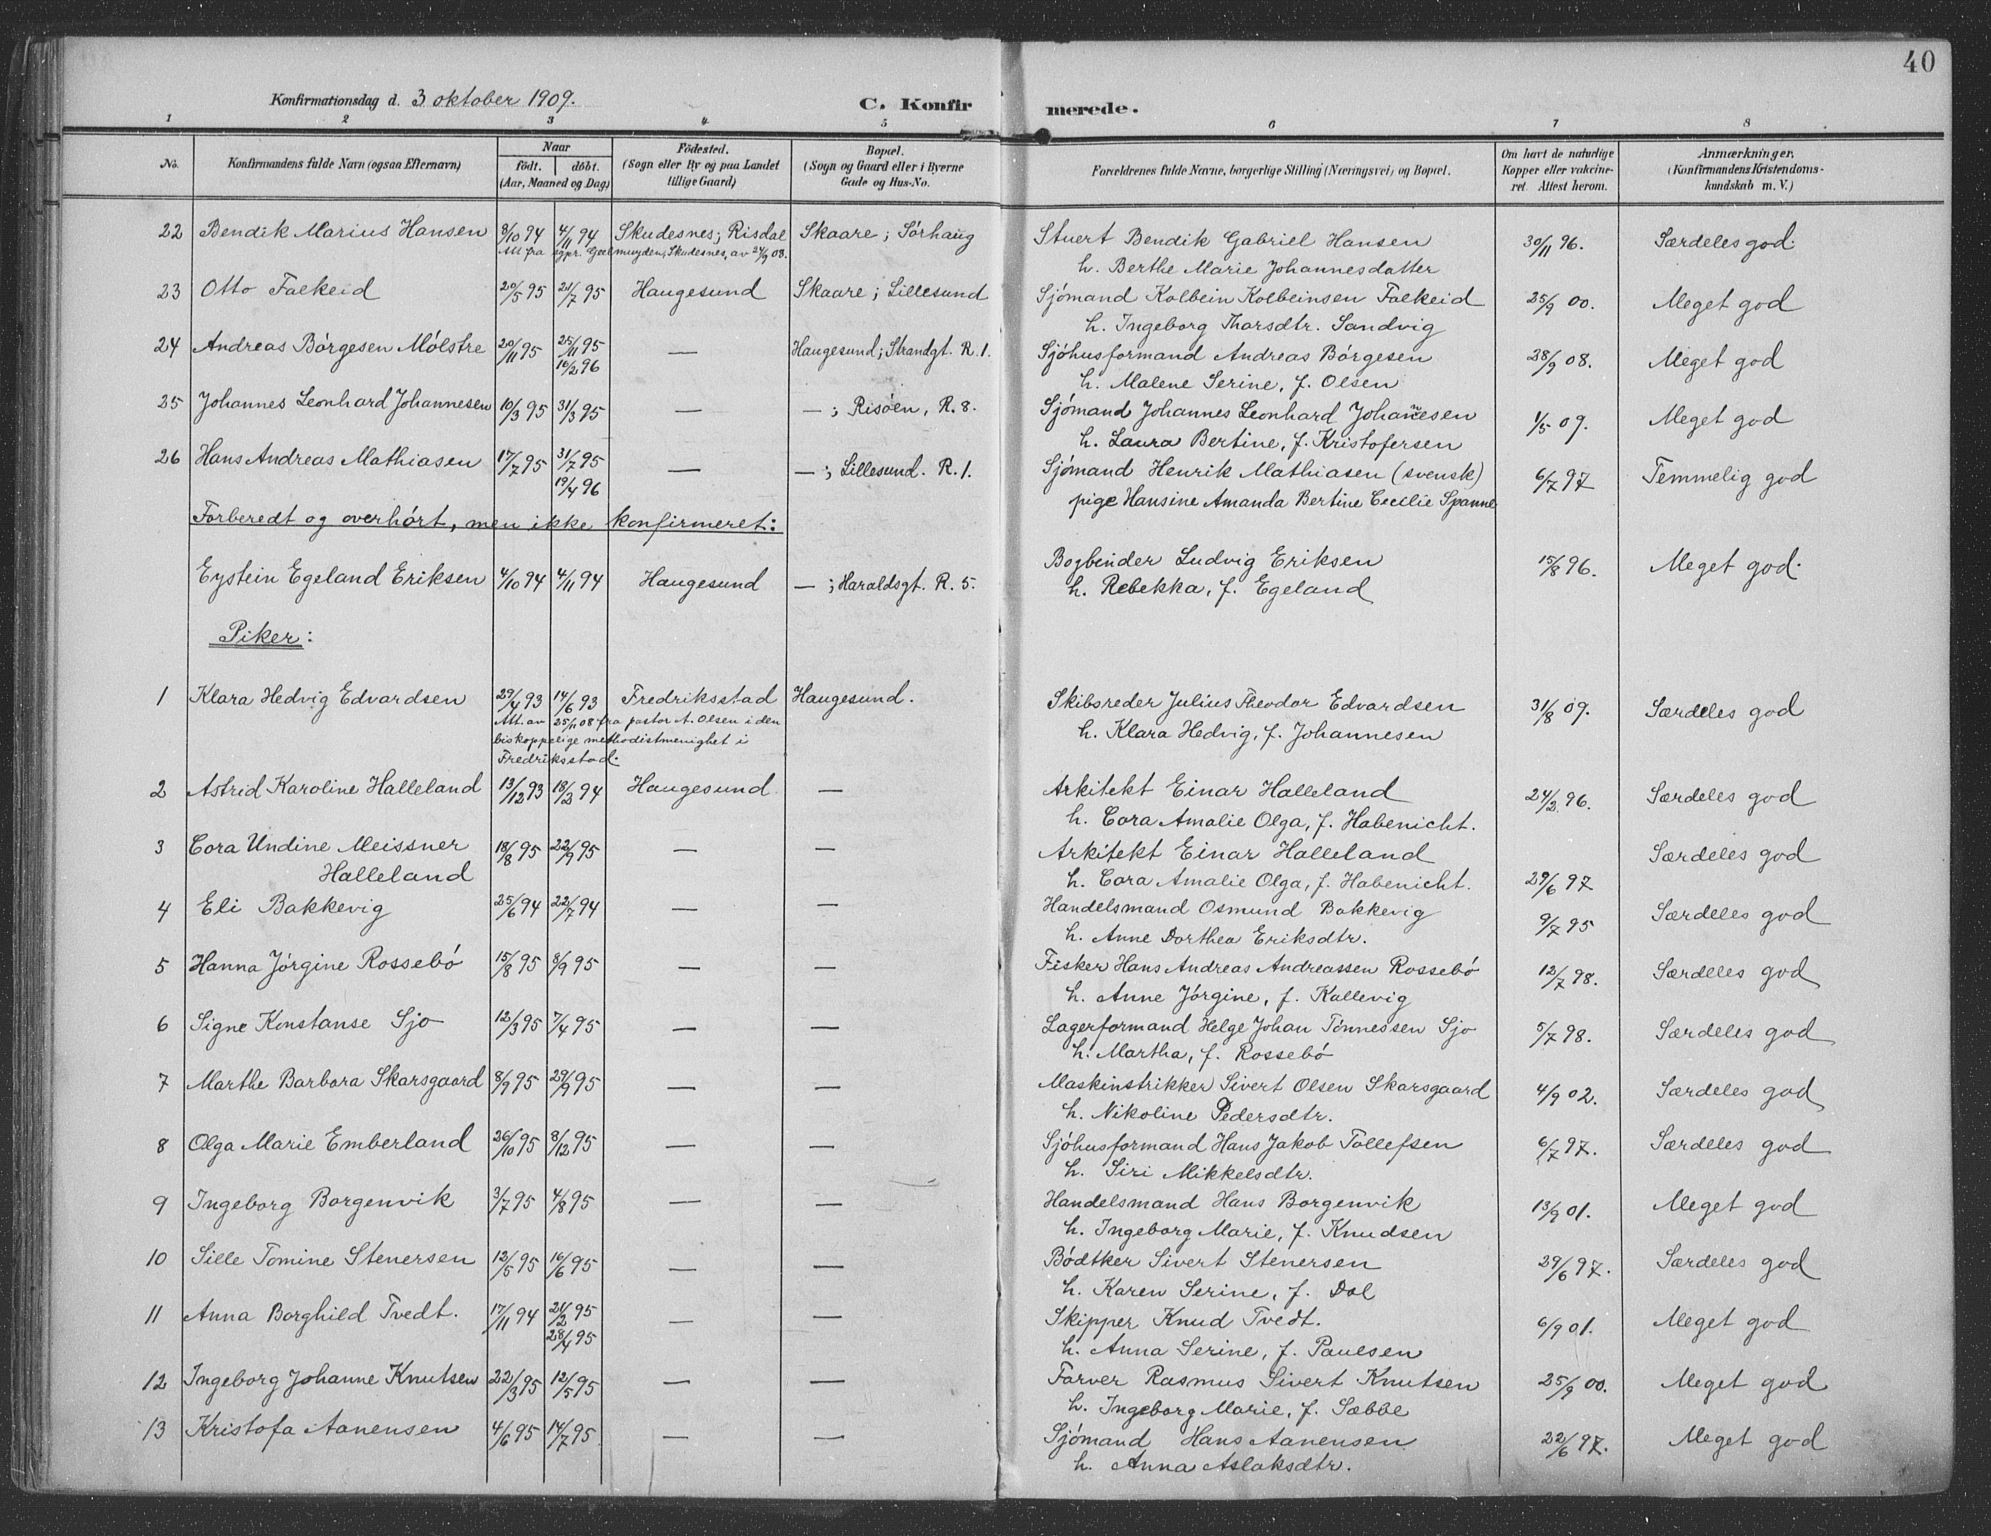 40
Konfirmationsdag d. 3 oktober 1909. C. Konfirmerede.
1 2 3 4 5 6 7 8
No. Konfirmandens fulde Navn (ogsaa Efternavn) Naar født. døbt. (Aar, Maaned og Dag) Fødested. (Sogn eller By og paa Landet tillige Gaard) Bopæl. (Sogn og Gaard eller i Byerne Gade og Hus-No. Forældrenes fulde Navne, borgerlige Stilling (Næringsvei) og Bopæl. Om havt de naturlige Kopper eller vakcineret. Attest herom. Anmærkninger. (Konfirmandens Kristendomskundskab m. V.)
22 Bendik Marius Hansen 8/10 94 4/11 94 Skudesnes; Risdal Skaare; Sørhaug Stuert Bendik Gabriel Hansen 30/11 96. Særdeles god.
Att fra sgpr. Geelmuyden, Skudesnes, av 24/9 08.
h. Berthe Marie Johannesdatter
23 Otto Falkeid 20/5 95 21/7 95 Haugesund Skaare; Lillesund Sjømand Kolbein Kolbeinsen Falkeid 25/9 00. Meget god
h. Ingeborg Thorsdtr. Sandvig
24 Andreas Børgesen Mølstre 20/11 95 25/11 95 — Haugesund; Strandgt. R. 1. Sjøhusformand Andreas Børgesen 28/9 08. Meget god
16/2 96 h. Malene Serine, f. Olsen
25 Johannes Leonhard Johannesen 10/3 95 31/3 95 — —; Risøen, R. 8. Sjømand Johannes Leonhard Johannesen 1/5 09. Meget god
h. Laura Bertine, f. Kristofersen
26 Hans Andreas Mathiasen 17/7 95 31/7 95 — —; Lillesund. R. 1. Sjømand Henrik Mathiasen (svensk) 6/7 97 Temmelig god
19/4 96 pige Hansine Amanda Bertine Cecilie Spanne
Forberedt og overhørt, men ikke konfirmeret:
Eystein Egeland Eriksen 4/10 94 4/11 94 Haugesund —; Haraldsgt. R. 5. Bogbinder Ludvig Eriksen 15/8 96. Meget god.
h. Rebekka, f. Egeland
Piker:
1 Klara Hedvig Edvardsen 29/4 93 14/6 93 Fredriksstad Haugesund. Skibsreder Julius Theodor Edvardsen 31/8 09. Særdeles god
Att. av 25/1 08 fra pastor A. Olsen i den
biskoppelige methodistmenighet i
Fredriksstad.
h. Klara Hedvig, f. Johannesen
2 Astrid Karoline Halleland 13/12 93 18/2 94 Haugesund — Arkitekt Einar Halleland 24/2 96. Særdeles god
h. Cora Amalie Olga, f. Habenicht.
3 Cora Undine Meissner 18/8 95 22/9 95 — — Arkitekt Einar Halleland Særdeles god
Halleland h. Cora Amalie Olga, f. Habenicht. 29/6 97
4 Eli Bakkevig 25/6 94 22/7 94 — — Handelsmand Osmund Bakkevig 9/7 95 Særdeles god
h. Anne Dorthea Eriksdtr.
5 Hanna Jørgine Rossebø 15/8 95 8/9 95 — — Fisker Hans Andreas Andreassen Rossebø 12/7 98. Særdeles god
h. Anne Jørgine, f. Kallevig
6 Signe Konstanse Sjo 12/3 95 7/4 95 — — Lagerformand Helge Johan Tønnessen Sjo 5/7 98. Særdeles god
h. Martha, f. Rossebø
7 Marthe Barbora Skarsgaard 8/9 95 29/9 95 — — Maskinstrikker Sivert Olsen Skarsgaard 4/9 02. Særdeles god
h. Nikoline Pedersdtr.
8 Olga Marie Emberland 26/10 95 8/12 95 — — Sjøhusformand Hans Jakob Tollefsen 6/7 97. Særdeles god
h. Siri Mikkelsdtr.
9 Ingeborg Borgenvik 3/7 95 4/8 95 — — Handelsmand Hans Borgenvik 13/9 01. Meget god
h. Ingeborg Marie, f. Knudsen
10 Sille Tomine Stenersen 12/5 95 16/6 95 — — Bødtker Sivert Stenersen 29/6 97. Særdeles god
h. Karen Serine, f. Dal
11 Anna Borghild Tvedt. 17/11 94 21/2 95 — — Skipper Knud Tvedt. 6/9 01. Meget god
28/4 95 h. Anna Serine, f. Paulsen
12 Ingeborg Johanne Knutsen 22/3 95 12/5 95 — — Farver Rasmus Sivert Knutsen 25/9 00. Meget god
h. Ingeborg Marie, f. Sæbbe
13 Kristofa Aanensen 4/6 95 14/7 95. — — Sjømand Hans Aanensen 22/6 97. Meget god
h. Anna Aslaksdtr.